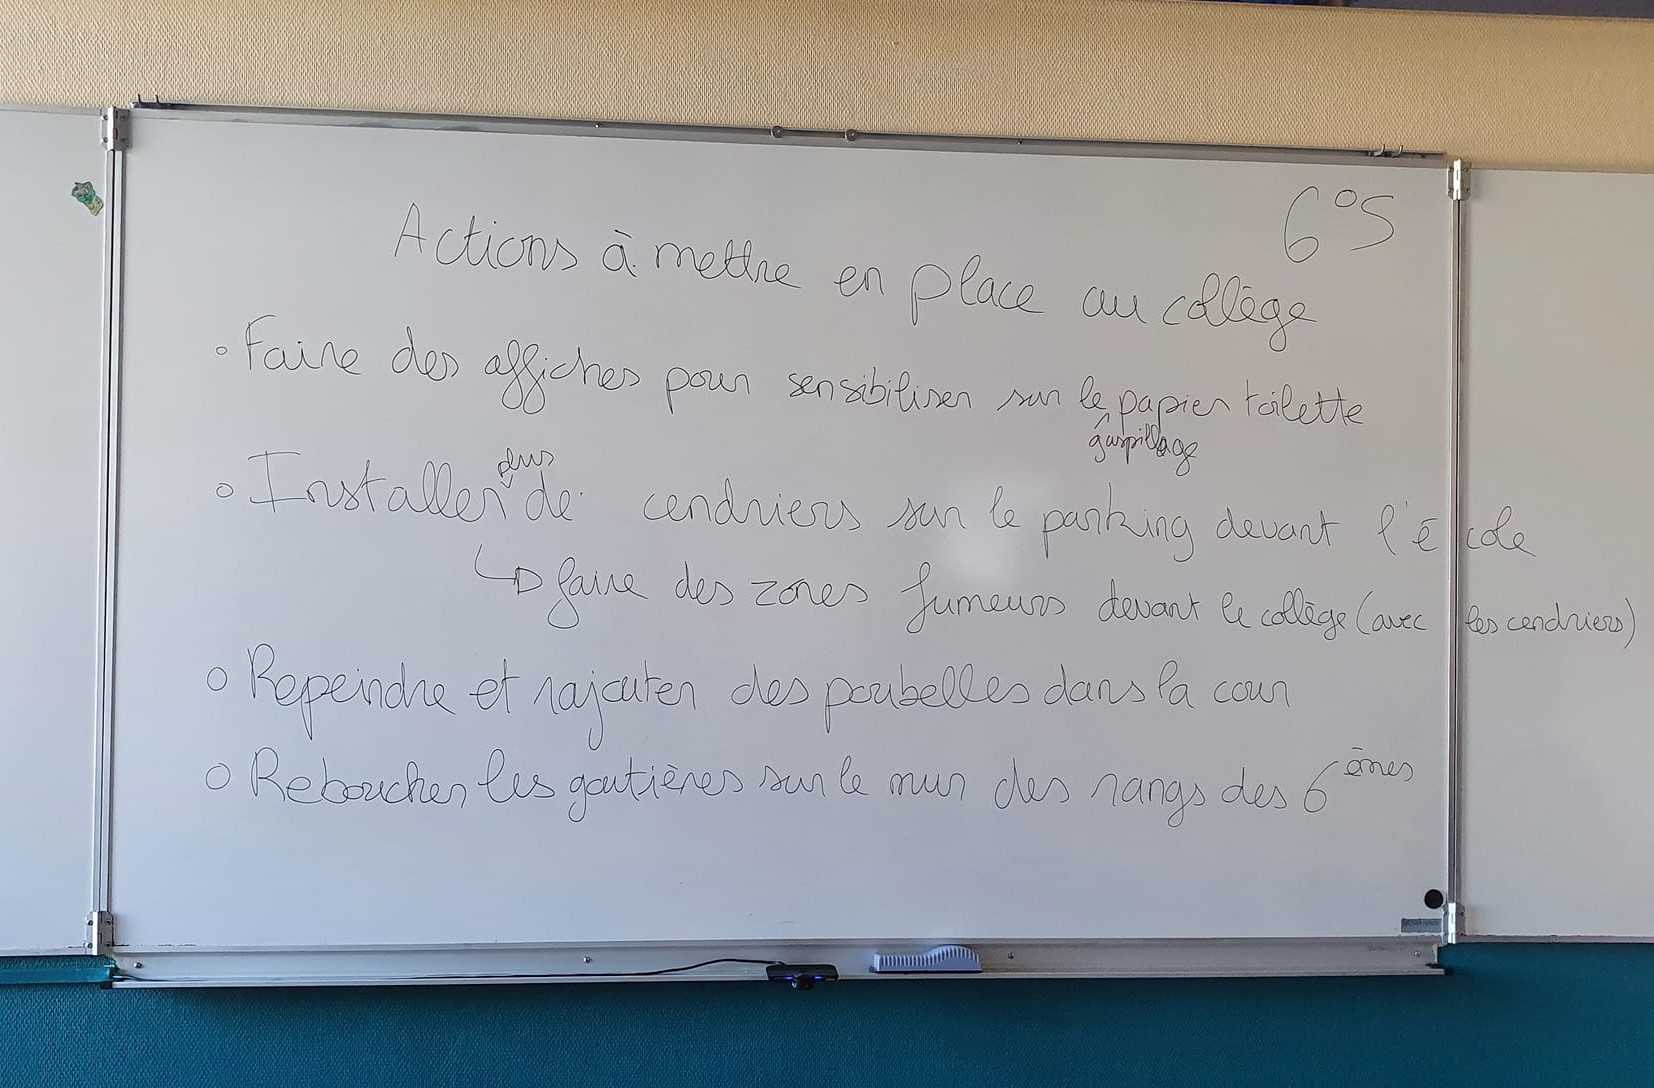 6°S
Actions à mettre en place au collège
• Faire des affiches pour sensibiliser sur le papier toilette
gaspillage
plus
• Installer de cendriers sur le parking devant l'école
↳ faire des zones fumeurs devant le collège (avec les cendriers)
• Repeindre et rajouter des poubelles dans la cour
• Reboucher les goutières sur le mur des rangs des 6èmes